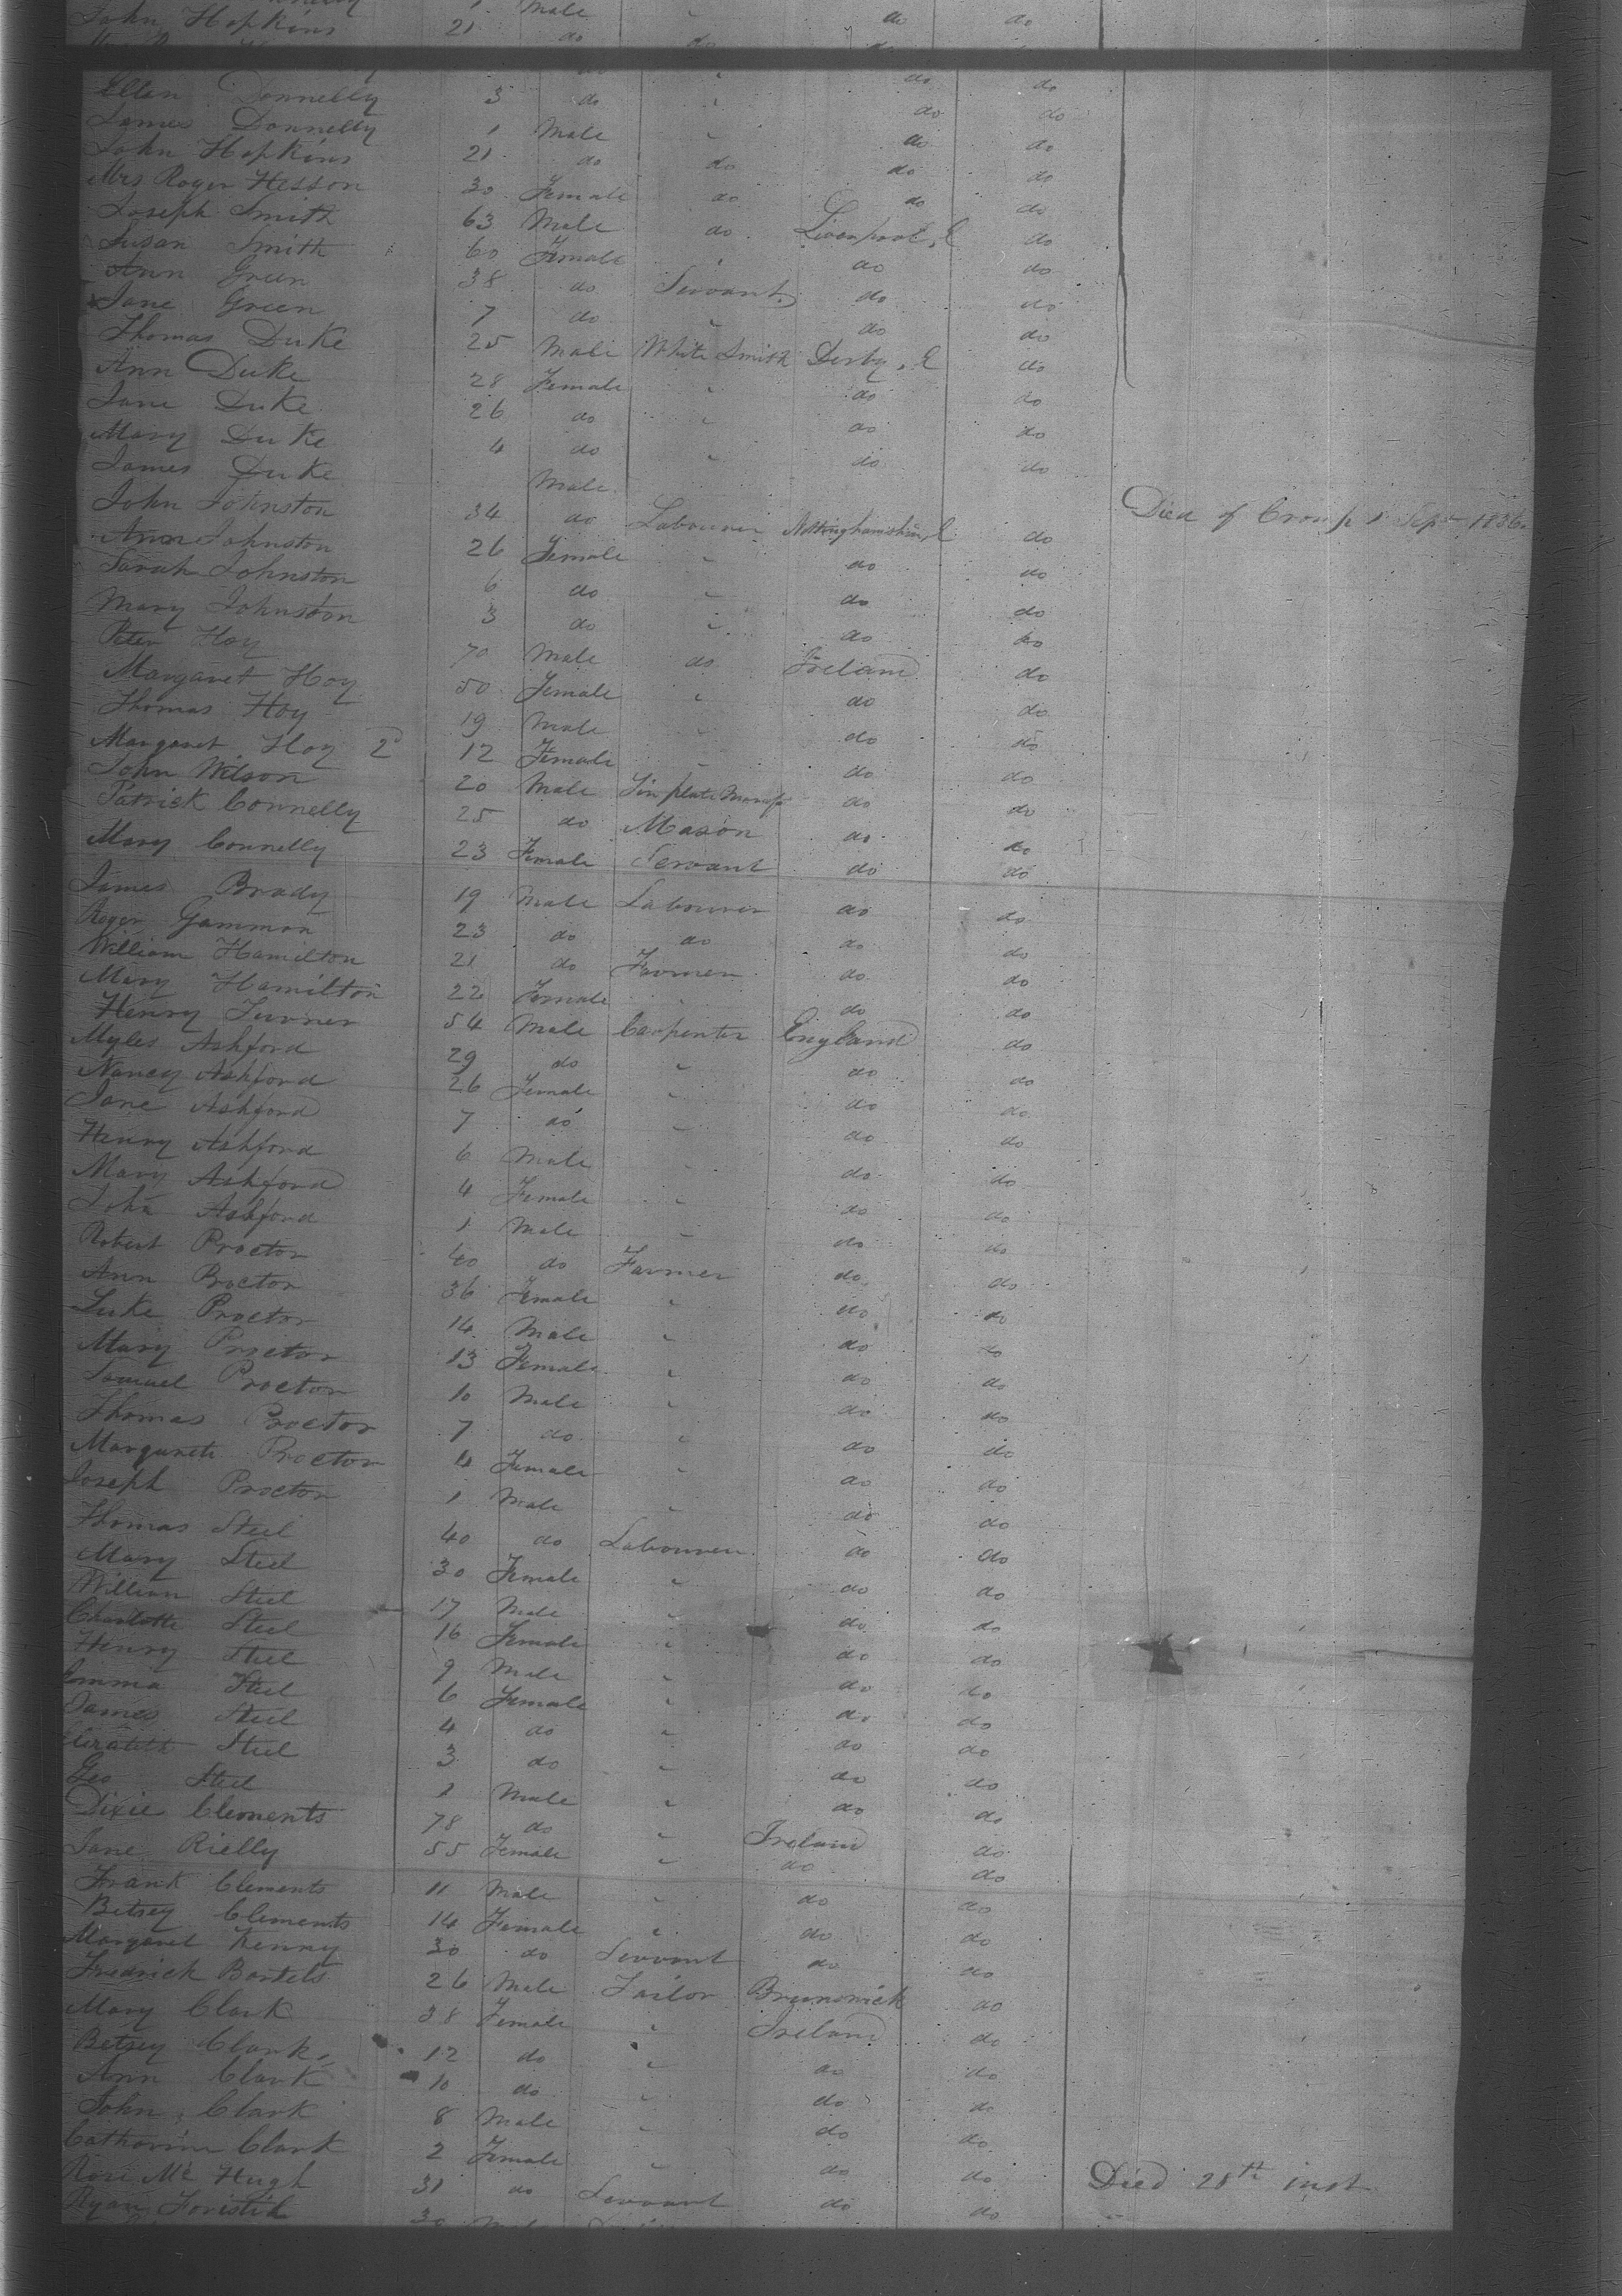 John Hopkins 21 Male do do
Ellen Donnelly 3 do " do do
James Donnelly 1 Male " do do
John Hopkins 21 do do do do
Mrs Roger Hesson 30 Female do do do
Joseph Smith 63 Male do Liverpool, E do
Susan Smith 60 Female " do do
Ann Green 38 do Servant do do
Jane Green 7 do " do do
Thomas Duke 25 Male White Smith Derby, E do
Ann Duke 28 Female " do do
Jane Duke 26 do " do do
Mary Duke 4 do " do do
James Duke Male Died of Croup 1 Sept 1836
John Johnston 34 do Labourer Nottinghamshire, E do
Ann Johnston 26 Female " do do
Sarah Johnston 6 do " do do
Mary Johnston 3 do " do do
Peter Hoy 70 Male do Ireland do
Margaret Hoy 50 Female " do do
Thomas Hoy 19 Male " do do
Margaret Hoy 2d 12 Female " do do
John Wilson 20 Male Tin plate Manufr do do
Patrick Connelly 25 do Mason do do
Mary Connelly 23 Female Servant do do
James Brady 19 Male Labourer do do
Roger Gammon 23 do do do do
William Hamilton 21 do Farmer do do
Mary Hamilton 22 Female " do do
Henry Turner 54 Male Carpenter England do
Myles Ashford 29 do " do do
Nancy Ashford 26 Female " do do
Jane Ashford 7 do " do do
Henry Ashford 6 Male " do do
Mary Ashford 4 Female " do do
John Ashford 1 Male " do do
Robert Proctor 40 do Farmer do do
Ann Proctor 36 Female " do do
Luke Proctor 14 Male " do do
Mary Proctor 13 Female " do do
Samuel Proctor 10 Male " do do
Thomas Proctor 7 do " do do
Margarete Proctor 4 Female " do do
Joseph Proctor 1 Male " do do
Thomas Steel 40 do Labourer do do
Mary Steel 30 Female " do do
William Steel 17 Male " do do
Charlotte Steel 16 Female " do do
Henry Steel 9 Male " do do
Emma Steel 6 Female " do do
James Steel 4 do " do do
Elizabeth Steel 3 do " do do
Geo Steel 1 Male " do do
Dixie Clements 78 do " Ireland do
Jane Rielly 55 Female " do do
Frank Clements 11 Male " do do
Betsey Clements 14 Female " do do
Margaret Kenny 30 do Servant do do
Fredrick Bartels 26 Male Tailor Brunswick do
Mary Clark 38 Female " Ireland do
Betsey Clark 12 do " do do
Ann Clark 10 do " do do
John Clark 8 Male " do do
Catharine Clark 2 Female " do do Died 28th inst
Rose Mc Hugh 31 do Servant do do
Ryan 30